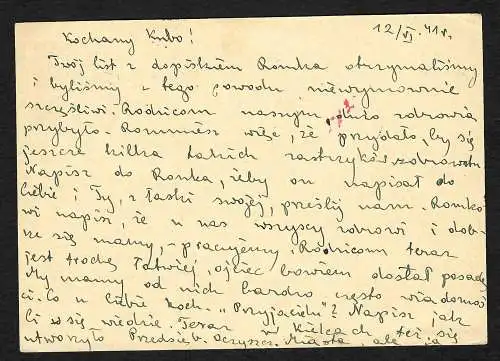 12/VI. 41 r.
Kochany Kubo!
Twój list z dopiskiem Romka otrzymaliśmy
i byliśmy z tego powodu niewymownie
szczęśliwi. Rodzicom naszym dużo zdrowia
przybyło. Rozumiesz więc, że przydało, by się
jeszcze kilka takich zastrzyków zdrowotn
Napisz do Romka, żeby on napisał do
Ciebie i Ty, z łaski swojej, prześlij nam. Romko-
wi napisz, że u nas wszyscy zdrowi i dob-
rze się mamy, - pracujemy. Rodzicom teraz
jest trochę łatwiej, ojciec bowiem dostał posadę
My mamy od nich bardzo często wiadomoś
ci. Co u Ciebie Koch. "Przyjacielu"? Napisz jak
Ci się wiedzie. Teraz w Kielcach też się
utworzyło Przedsięb. Oczyszcz. Miasta, ale ja